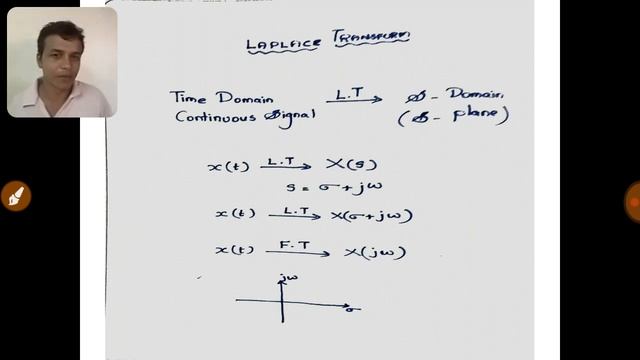 LAPLACE TRANSFORM
Time Domain Continuous Signal L.T S - Domain (S - plane)
x(t) L.T X(s)
s = σ + jω
x(t) L.T X(σ+jω)
x(t) F.T X(jω)
jω
σ